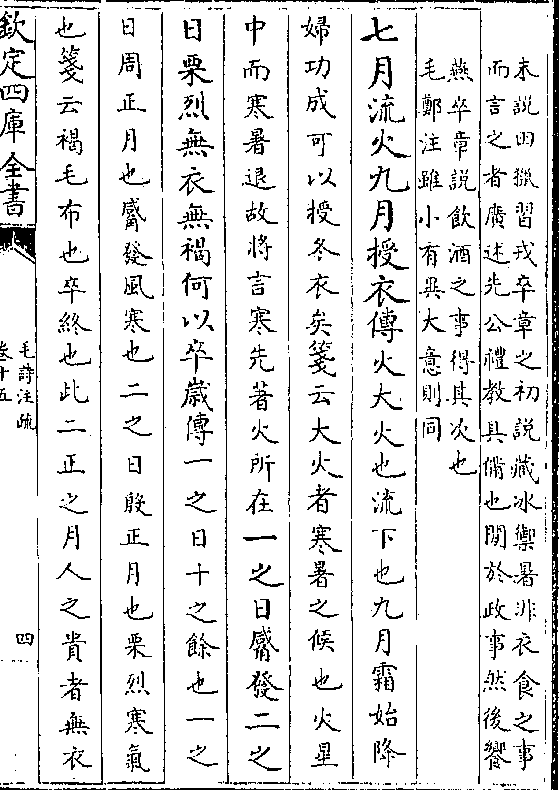 末說田獵習戎卒章之初說藏冰禦暑非衣食之事
而言之者廣述先公禮教具備也閒於政事然後饗
燕卒章說飲酒之事得其次也
毛鄭注雖小有異大意則同
七月流火九月授衣傳火大火也流下也九月霜始降
婦功成可以授冬衣矣箋云大火者寒暑之候也火星
中而寒暑退故將言寒先著火所在一之日觱發二之
日栗烈無衣無褐何以卒歲傳一之日十之餘也一之
日周正月也觱發風寒也二之日殷正月也栗烈寒氣
也箋云褐毛布也卒終也此二正之月人之貴者無衣
欽定四庫全書
毛詩注疏
卷十五
四